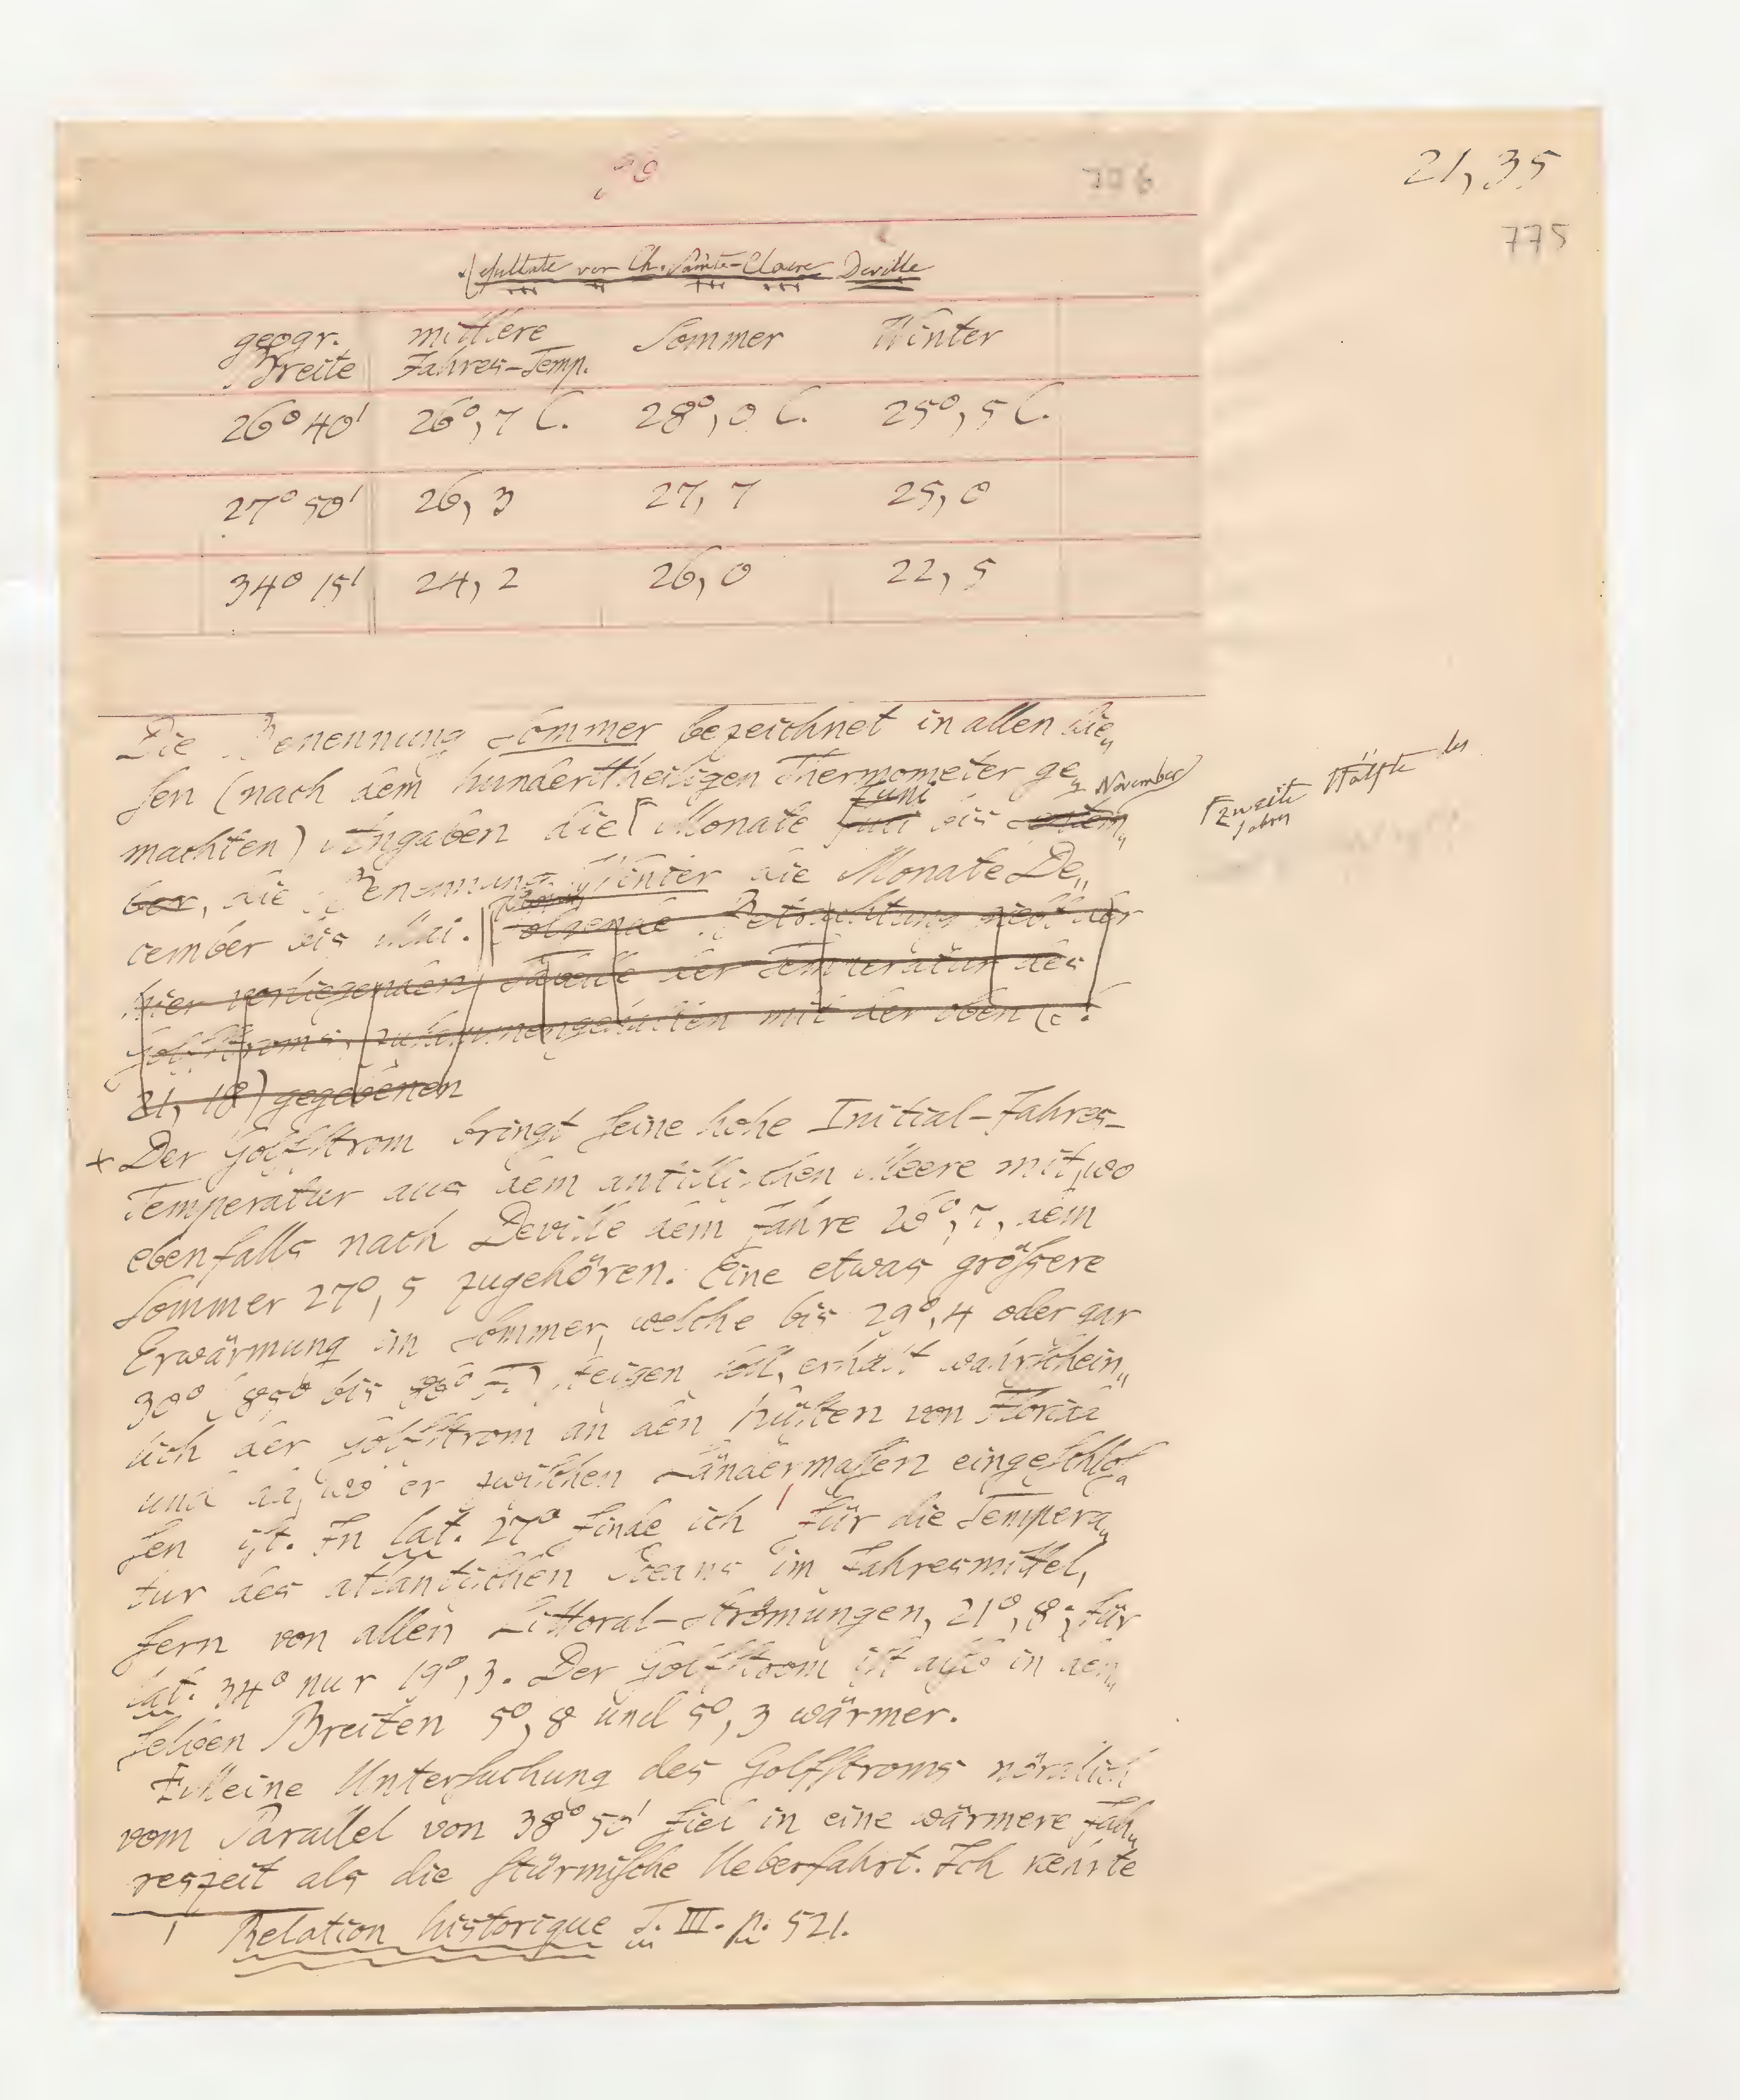 21, 35
706
775
Resultate von Ch. Sainte-Claire Deville
geogr. Breite mittlere Jahres-Temp. Sommer Winter
26° 40' 26°, 7 C. 28°, 0 C. 25°, 5 C.
27° 50' 26, 3 27, 7 25, 0
34° 15' 24, 2 26, 0 22, 5
Die Benennung Sommer bezeichnet in allen die„
sen (nach dem hunderttheiligen Thermometer ge„
machten) Angaben die Monate Juni bis November
zweite Hälfte des
Jahres
ber, die Benennung Winter die Monate De„
cember bis Mai. folgende Betrachtung giebt der
hier vorliegenden Tabelle der Temperatur des
Golfstroms, zusammengehalten mit der oben (c.
21, 18) gegebenen
+ Der Golfstrom bringt seine hohe Initial-Jahres-
Temperatur aus dem antillischen Meere mit, wo
ebenfalls nach Deville dem Jahre 26°, 7, dem
Sommer 27°, 5 zugehören. Eine etwas grössere
Erwärmung im Sommer, welche bis 29°, 4 oder gar
30° (85° bis 86° F.) steigen soll, erhält wahrschein„
lich der Golfstrom an den Küsten von Florida
und da, wo er zwischen Ländermassen eingeschlos„
sen ist. In lat. 27° finde ich ¹ für die Tempera„
tur des atlantischen Oceans im Jahresmittel,
fern von allen Littoral-Strömungen, 21°, 8; für
lat. 34° nur 19°, 3. Der Golfstrom ist also in den„
selben Breiten 5°, 8 und 5°, 3 wärmer.
Meine Untersuchung des Golfstroms nördlich
vom Parallel von 38° 50' fiel in eine wärmere Jah„
reszeit als die stürmische Ueberfahrt. Ich kehrte
1 Relation historique T. III. p. 521.